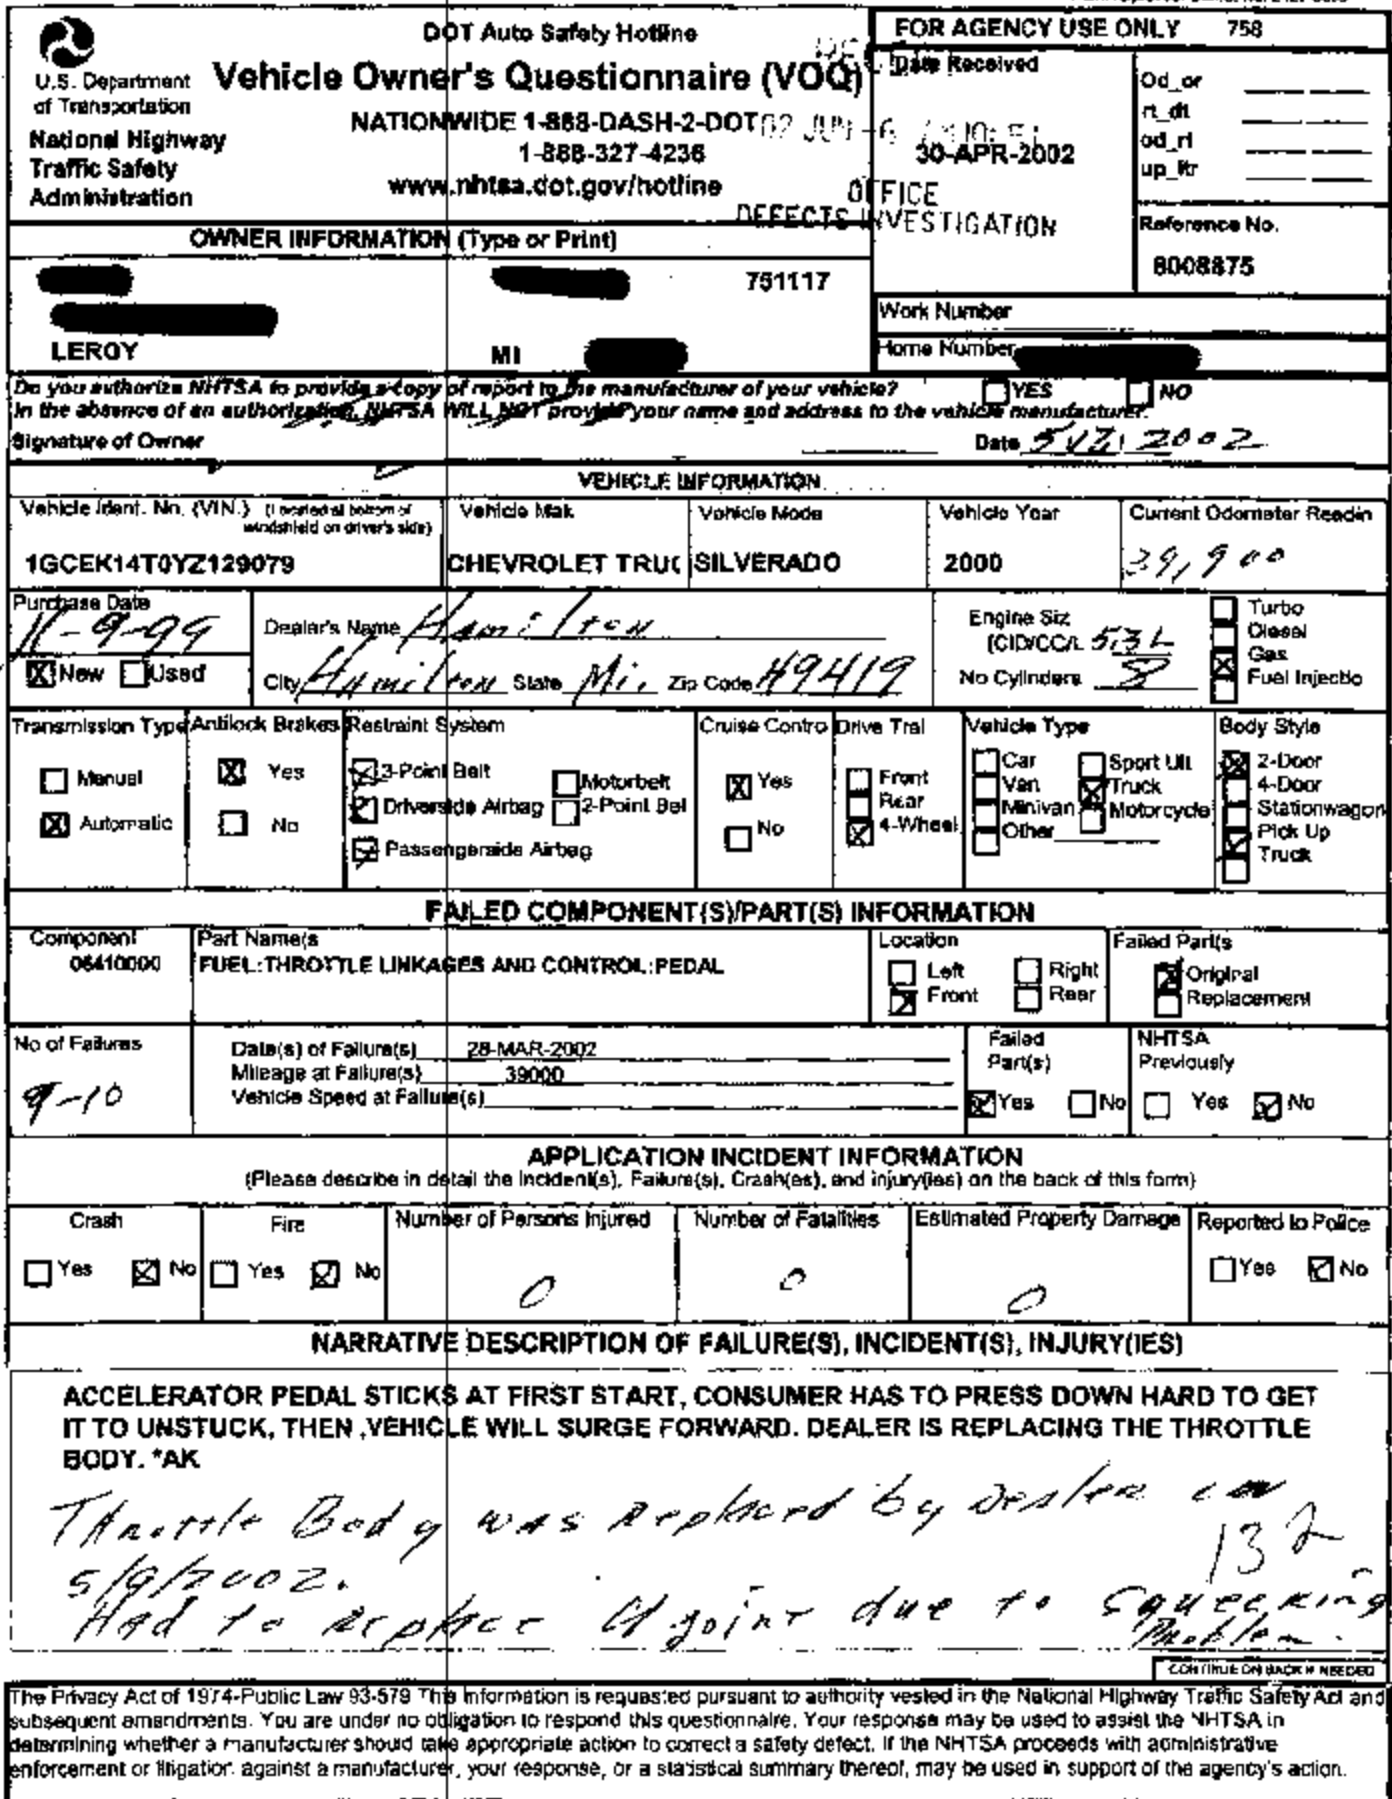 DOT Auto Safety Hotline
FOR AGENCY USE ONLY 758
U.S. Department
of Transportation
National Highway
Traffic Safety
Administration
Vehicle Owner's Questionnaire (VOQ)
NATIONWIDE 1-888-DASH-2-DOT
1-888-327-4236
www.nhtsa.dot.gov/hotline
Date Received
30-APR-2002
OFFICE
DEFECTS INVESTIGATION
Od_or
rt_dt
od_rt
up_ltr
Reference No.
8008875
OWNER INFORMATION (Type or Print)
751117
LEROY MI
Work Number
Home Number
Do you authorize NHTSA to provide a copy of report to the manufacturer of your vehicle? YES NO
In the absence of an authorization, NHTSA WILL NOT provide your name and address to the vehicle manufacturer.
Signature of Owner Date 2002
VEHICLE INFORMATION
Vehicle Ident. No. (VIN.) (Located at bottom of windshield on driver's side)
1GCEK14T0YZ129079
Vehicle Mak
CHEVROLET TRUC
Vehicle Mode
SILVERADO
Vehicle Year
2000
Current Odometer Readin
39,900
Purchase Date
11-9-99
New Used
Dealer's Name Hamilton
City Hamilton State Mi. Zip Code 49419
Engine Siz
(CID/CC/L 5.3L
No Cylinders 8
Turbo
Diesel
Gas
Fuel Injectio
Transmission Type
Manual
Automatic
Antilock Brakes
Yes
No
Restraint System
3-Point Belt
Motorbelt
Driverside Airbag
2-Point Bel
Passengerside Airbag
Cruise Contro
Yes
No
Drive Trai
Front
Rear
4-Wheel
Vehicle Type
Car
Van
Minivan
Other
Sport Uti
Truck
Motorcycle
Body Style
2-Door
4-Door
Stationwagon
Pick Up
Truck
FAILED COMPONENT(S)/PART(S) INFORMATION
Component
06410000
Part Name(s
FUEL:THROTTLE LINKAGES AND CONTROL:PEDAL
Location
Left Right
Front Rear
Failed Part(s
Original
Replacement
No of Failures
9-10
Date(s) of Failure(s) 28-MAR-2002
Mileage at Failure(s) 39000
Vehicle Speed at Failure(s)
Failed
Part(s)
Yes No
NHTSA
Previously
Yes No
APPLICATION INCIDENT INFORMATION
(Please describe in detail the Incident(s), Failure(s), Crash(es), and injury(ies) on the back of this form)
Crash
Yes No
Fire
Yes No
Number of Persons Injured
0
Number of Fatalities
0
Estimated Property Damage
0
Reported to Police
Yes No
NARRATIVE DESCRIPTION OF FAILURE(S), INCIDENT(S), INJURY(IES)
ACCELERATOR PEDAL STICKS AT FIRST START, CONSUMER HAS TO PRESS DOWN HARD TO GET
IT TO UNSTUCK, THEN ,VEHICLE WILL SURGE FORWARD. DEALER IS REPLACING THE THROTTLE
BODY. *AK
Throttle Body was Replaced by Dealer on
5/9/2002.
Had to Replace U joint due to Squeeking
Problem.
CONTINUE ON BACK IF NEEDED
The Privacy Act of 1974-Public Law 93-579 This information is requested pursuant to authority vested in the National Highway Traffic Safety Act and
subsequent amendments. You are under no obligation to respond this questionnaire. Your response may be used to assist the NHTSA in
determining whether a manufacturer should take appropriate action to correct a safety defect. If the NHTSA proceeds with administrative
enforcement or litigation against a manufacturer, your response, or a statistical summary thereof, may be used in support of the agency's action.